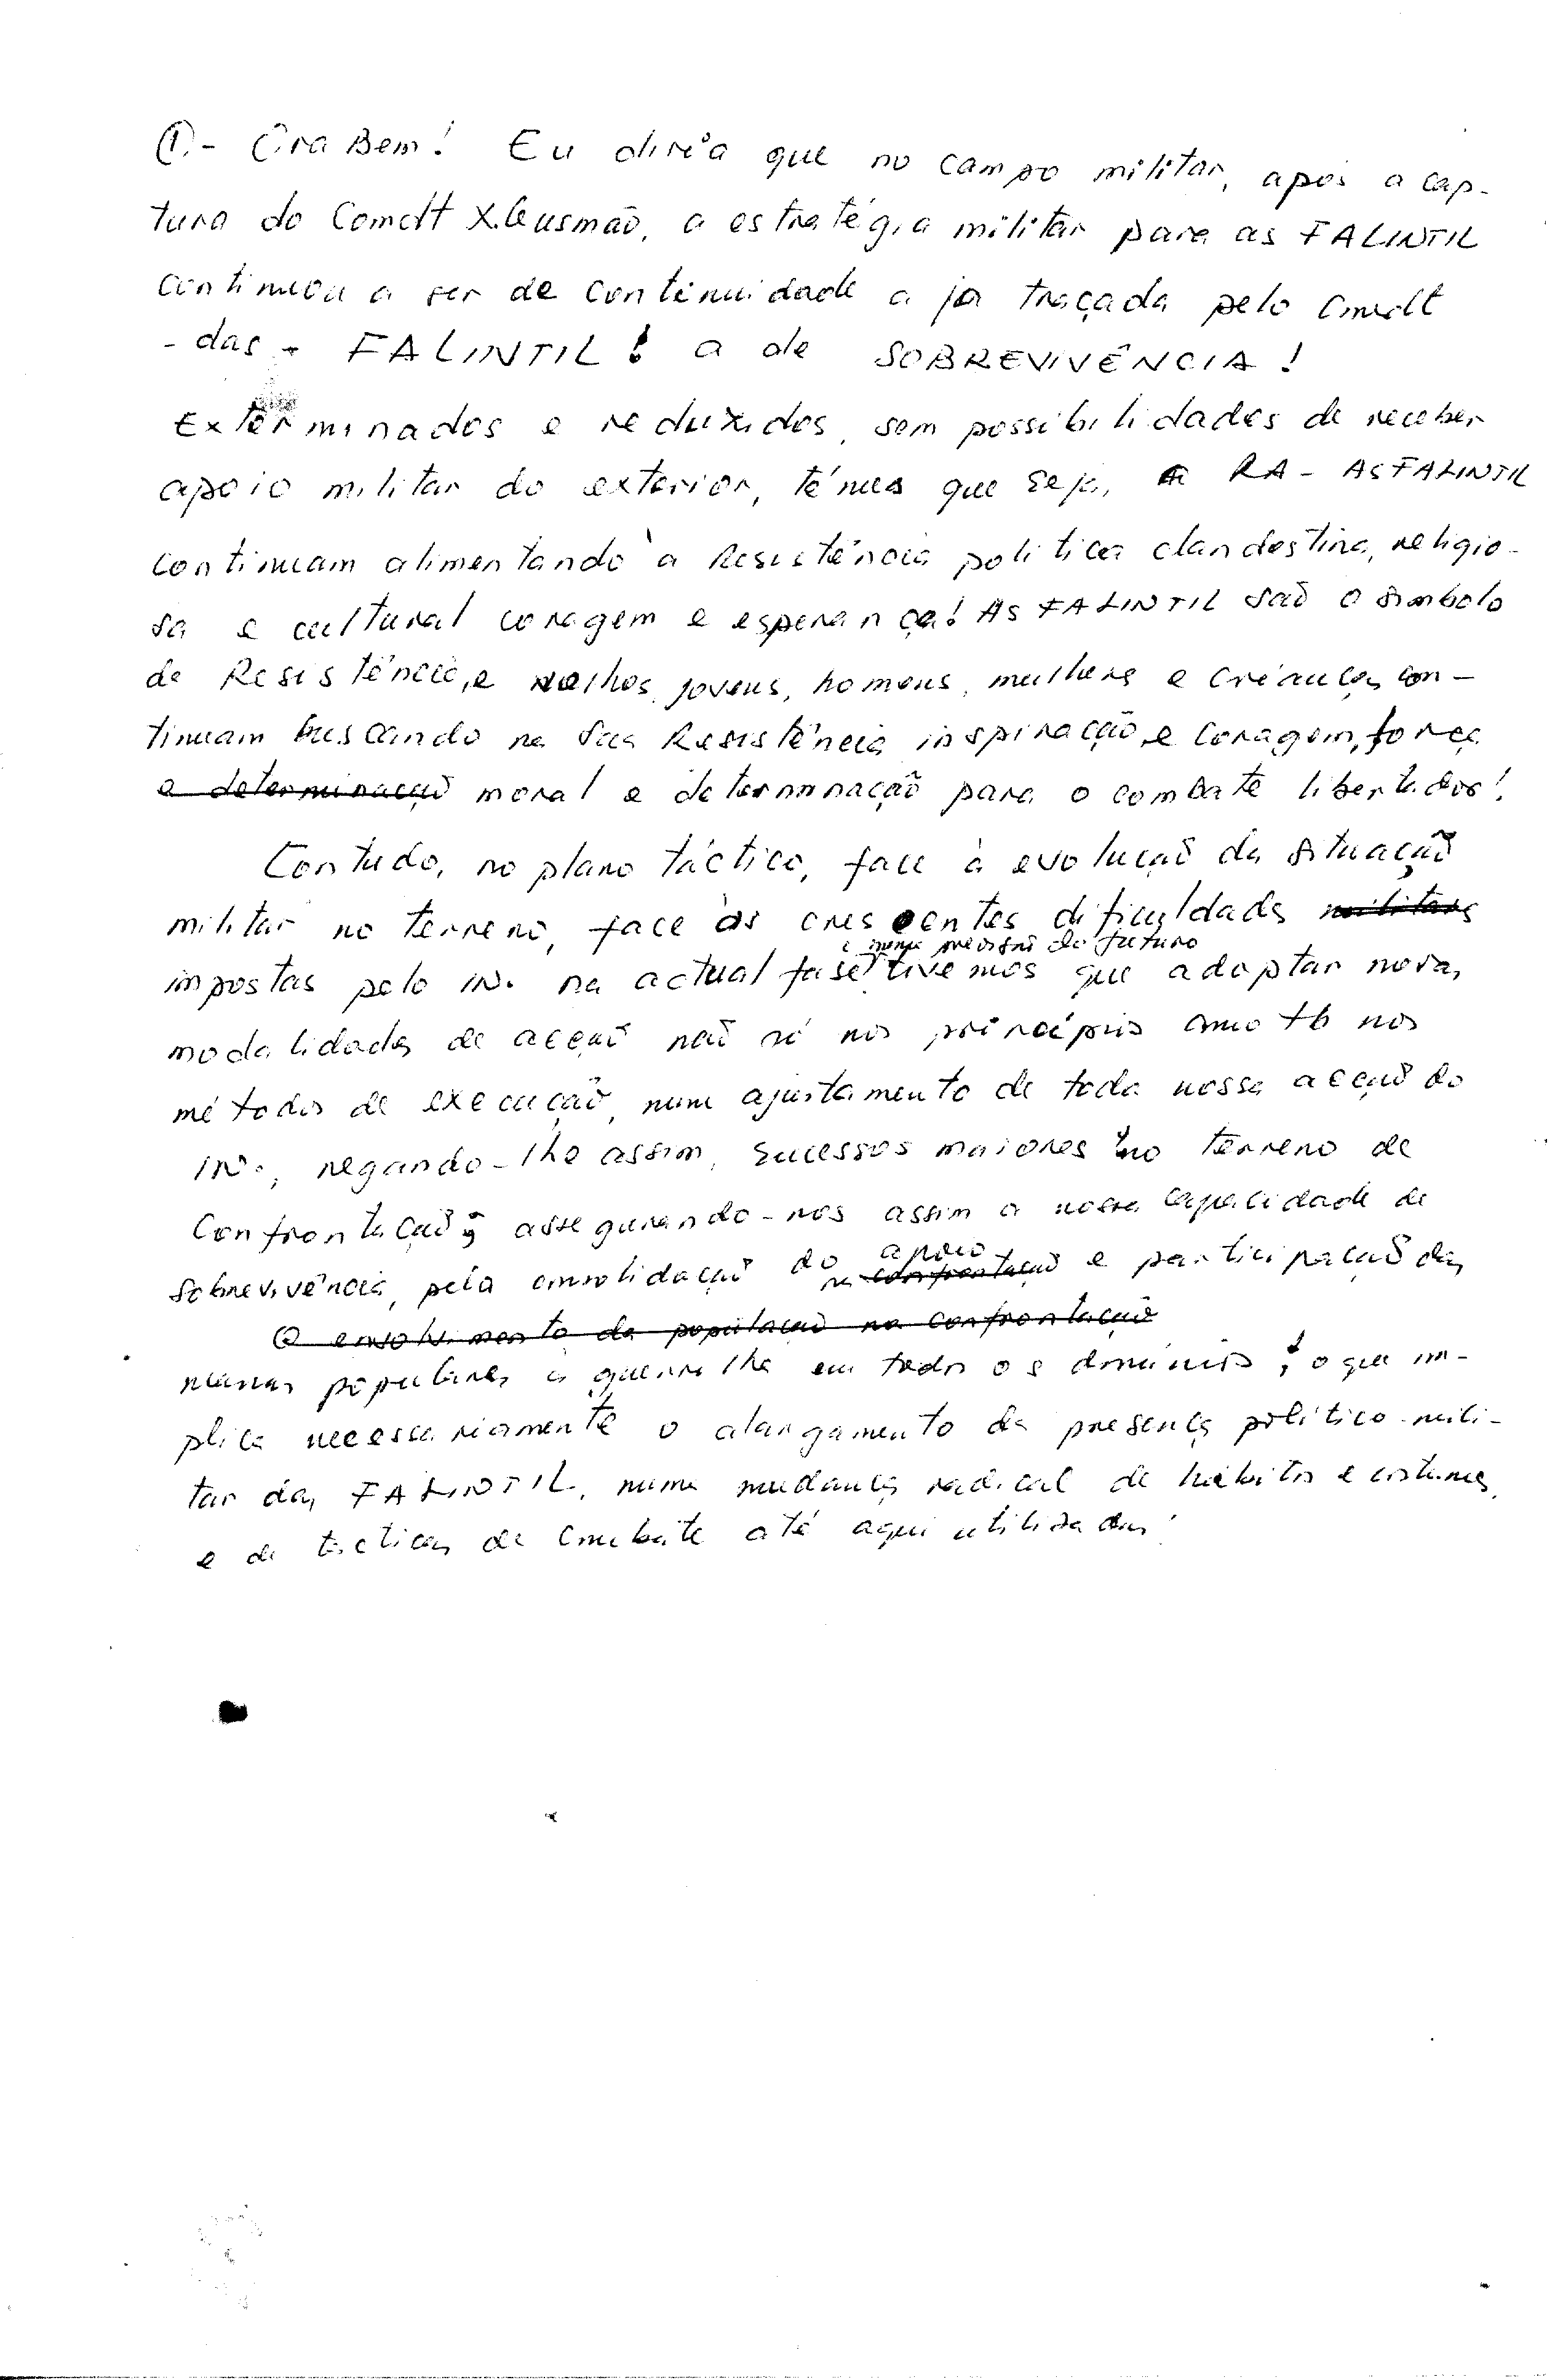 ①.- Ora Bem! Eu diria que no campo militar, após a cap-
tura do Comdt X.Gusmão, a estratégia militar para as FALINTIL
continuou a ser de continuidade a já traçada pelo Cmdt
- das - FALINTIL! a de SOBREVIVÊNCIA!
Exterminados e reduzidos, sem possibilidades de receber
apoio militar do exterior, ténues que seja, a RA - AS FALINTIL
continuam alimentando à Resistência politica clandestina, religio-
sa e cultural coragem e esperança! AS FALINTIL são o simbolo
de Resistência, e velhos, jovens, homens, mulheres e crianças con-
tinuam buscando na sua Resistência inspiração e coragem, força
e determinação moral e determinação para o combate libertador!
Contudo, no plano táctico, face à evolução da situação
militar no terreno, face às crescentes dificuldades militares
e numa previsão do futuro
impostas pelo IN. na actual fase tivemos que adoptar novas
modalidades de acção não só nos princípios como tb nos
métodos de execução, num ajustamento de toda nossa acção do
IN., negando-lhe assim, sucessos maiores no terreno de
confrontação; assegurando-nos assim a nossa capacidade de
sobrevivência, pela consolidação do apoio na confrontação e participação das
O envolvimento da população na confrontação
massas populares à guerrilha em todos os domínios; o que im-
plica necessariamente o alargamento da presença político-mili-
tar das FALINTIL, numa mudança radical de hábitos e costumes,
e de tácticas de combate até aqui utilizadas!